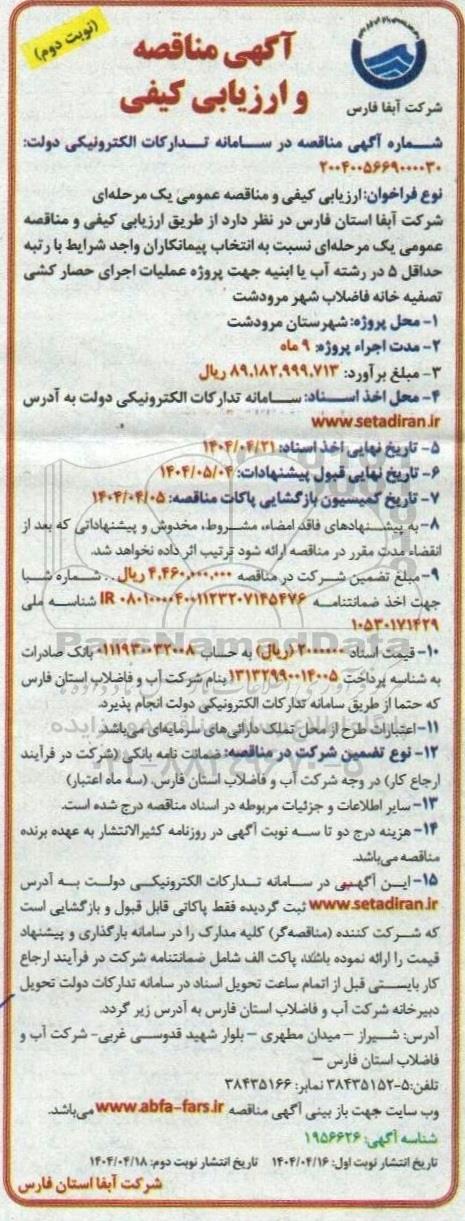 (نوبت دوم)
آگهی مناقصه
و ارزیابی کیفی
شرکت آبفا فارس
شماره آگهی مناقصه در سامانه تدارکات الکترونیکی دولت:
۲۰۰۴۰۰۵۶۶۹۰۰۰۰۳۰
نوع فراخوان: ارزیابی کیفی و مناقصه عمومی یک مرحله‌ای
شرکت آبفا استان فارس در نظر دارد از طریق ارزیابی کیفی و مناقصه
عمومی یک مرحله‌ای نسبت به انتخاب پیمانکاران واجد شرایط با رتبه
حداقل ۵ در رشته آب یا ابنیه جهت پروژه عملیات اجرای حصار کشی
تصفیه خانه فاضلاب شهر مرودشت
۱- محل پروژه: شهرستان مرودشت
۲- مدت اجراء پروژه: ۹ ماه
۳- مبلغ برآورد: ۸۹,۱۸۲,۹۹۹,۷۱۳ ریال
۴- محل اخذ اسناد: سامانه تدارکات الکترونیکی دولت به آدرس
www.setadiran.ir
۵- تاریخ نهایی اخذ اسناد: ۱۴۰۴/۰۴/۲۱
۶- تاریخ نهایی قبول پیشنهادات: ۱۴۰۴/۰۵/۰۴
۷- تاریخ کمیسیون بازگشایی پاکات مناقصه: ۱۴۰۴/۰۴/۰۵
۸- به پیشنهادهای فاقد امضاء، مشروط، مخدوش و پیشنهاداتی که بعد از
انقضاء مدت مقرر در مناقصه ارائه شود ترتیب اثر داده نخواهد شد.
۹- مبلغ تضمین شرکت در مناقصه ۴,۴۶۰,۰۰۰,۰۰۰ ریال . . شماره شبا
جهت اخذ ضمانتنامه IR ۰۸۰۱۰۰۰۰۴۰۰۱۱۲۳۲۰۷۱۴۵۴۷۶ شناسه ملی
۱۰۵۳۰۱۷۱۴۲۹
۱۰- قیمت اسناد ۲۰۰۰۰۰۰ (ریال) به حساب ۰۱۱۱۹۳۰۰۳۲۰۰۸ بانک صادرات
به شناسه پرداخت ۱۳۱۳۲۹۹۰۰۱۴۰۰۵ بنام شرکت آب و فاضلاب استان فارس
که حتما از طریق سامانه تدارکات الکترونیکی دولت انجام پذیرد.
۱۱- اعتبارات طرح از محل تملک دارائی‌های سرمایه‌ای می‌باشد.
۱۲- نوع تضمین شرکت در مناقصه: ضمانت نامه بانکی (شرکت در فرآیند
ارجاع کار) در وجه شرکت آب و فاضلاب استان فارس. (سه ماه اعتبار)
۱۳- سایر اطلاعات و جزئیات مربوطه در اسناد مناقصه درج شده است.
۱۴- هزینه درج دو تا سه نوبت آگهی در روزنامه کثیرالانتشار به عهده برنده
مناقصه می‌باشد.
۱۵- این آگهی در سامانه تدارکات الکترونیکی دولت به آدرس
www.setadiran.ir ثبت گردیده فقط پاکاتی قابل قبول و بازگشایی است
که شرکت کننده (مناقصه‌گر) کلیه مدارک را در سامانه بارگذاری و پیشنهاد
قیمت را ارائه نموده باشد، پاکت الف شامل ضمانتنامه شرکت در فرآیند ارجاع
کار بایستی قبل از اتمام ساعت تحویل اسناد در سامانه تدارکات دولت تحویل
دبیرخانه شرکت آب و فاضلاب استان فارس به آدرس زیر گردد.
آدرس: شیراز – میدان مطهری – بلوار شهید قدوسی غربی- شرکت آب و
فاضلاب استان فارس –
تلفن: ۵-۳۸۴۳۵۱۵۲ نمابر: ۳۸۴۳۵۱۶۶
وب سایت جهت باز بینی آگهی مناقصه www.abfa-fars.ir می‌باشد.
شناسه آگهی: ۱۹۵۶۶۲۶
تاریخ انتشار نوبت اول: ۱۴۰۴/۰۴/۱۶ تاریخ انتشار نوبت دوم: ۱۴۰۴/۰۴/۱۸
شرکت آبفا استان فارس
ParsNamadData